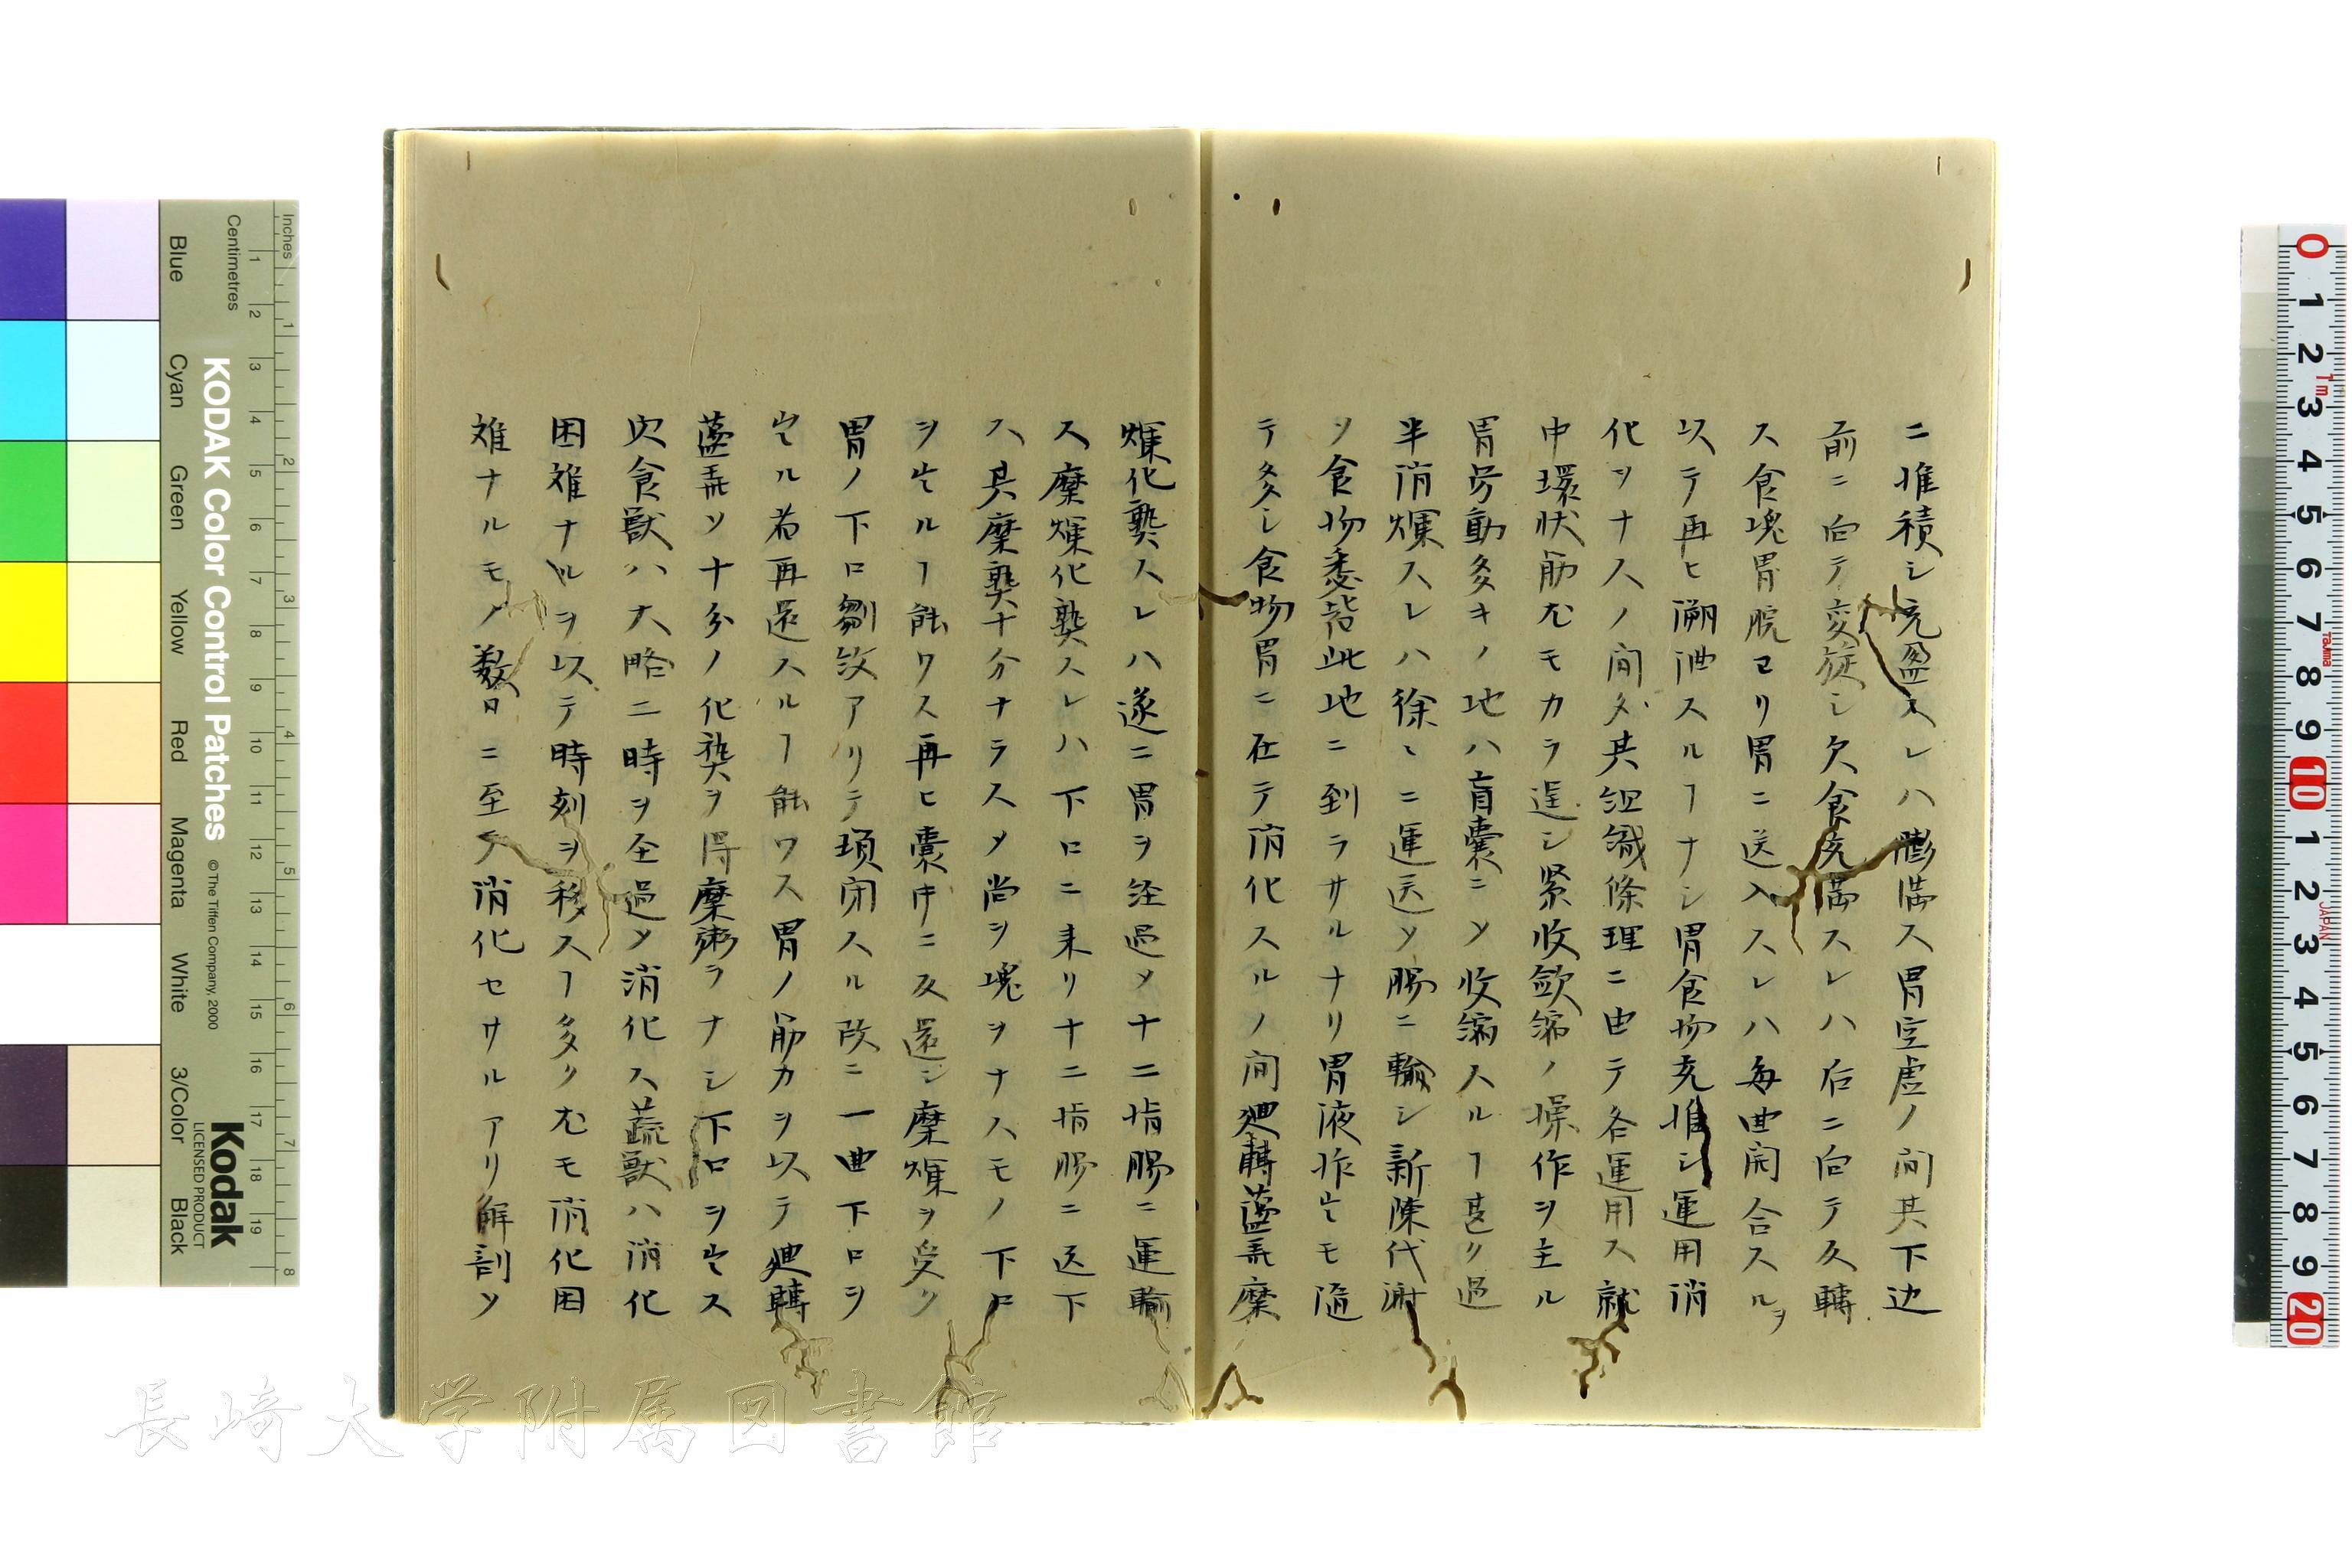 ニ堆積シ充盈スレハ膨満ス胃空虚ノ間其下辺
前ニ向テ変旋シ欠食充満スレハ后ニ向テ反轉
ス食塊胃脘ヨリ胃ニ送入スレハ毎曲開合スルヲ
以テ再ヒ溯洄スルヿナシ胃食物充堆シ運用消
化ヲナスノ間タ其組織條理ニ由テ各運用ス就
中環状筋尤モカラ逞シ緊收歛縮ノ操作ヲ主ル
胃労動多キノ地ハ盲嚢ニメ收縮スルヿ甚タ過
半消爛スレハ徐〻ニ運送メ腸ニ輸シ新陳代謝
メ食物悉皆此地ニ到ラサルナリ胃液雖モ随
テ多シ食物胃ニ在テ消化スルノ間廻轉盪弄糜
爛化熟スレハ遂ニ胃ヲ經過メ十二指腸ニ運輸
ス糜爛化熟スレハ下口ニ来リ十二指腸ニ送下
ス其糜熟十分ナラスメ尚ヲ塊ヲナスモノ下口
ヲ出ルヿ能ワス再ヒ嚢中ニ反還シ糜爛ヲ受ク
胃ノ下口皺紋アリテ頃閉スル故ニ一曲下口ヲ
出ル者再還スルヿ能ワス胃ノ筋力ヲ以テ廻轉
盪弄メ十分ノ化熟ヲ得糜粥ヲナシ下口ヲ出ス
肉食獣ハ大略二時ヲ全過メ消化ス蔬獣ハ消化
困難ナルヲ以テ時刻ヲ移スヿ多ク尤モ消化困
難ナルモノ数日ニ至テ消化セサルアリ解剖メ
KODAK Color Control Patches
© The Tiffen Company, 2000
Kodak
LICENSED PRODUCT
Inches
Centimetres
Blue
Cyan
Green
Yellow
Red
Magenta
White
3/Color
Black
長崎大学附属図書館